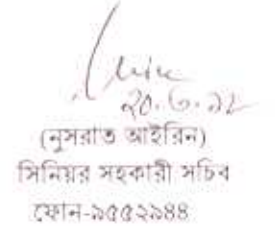 ২০.৬.১২
(নুসরাত আইরিন)
সিনিয়র সহকারী সচিব
ফোন-৯৫৫২১৪৪